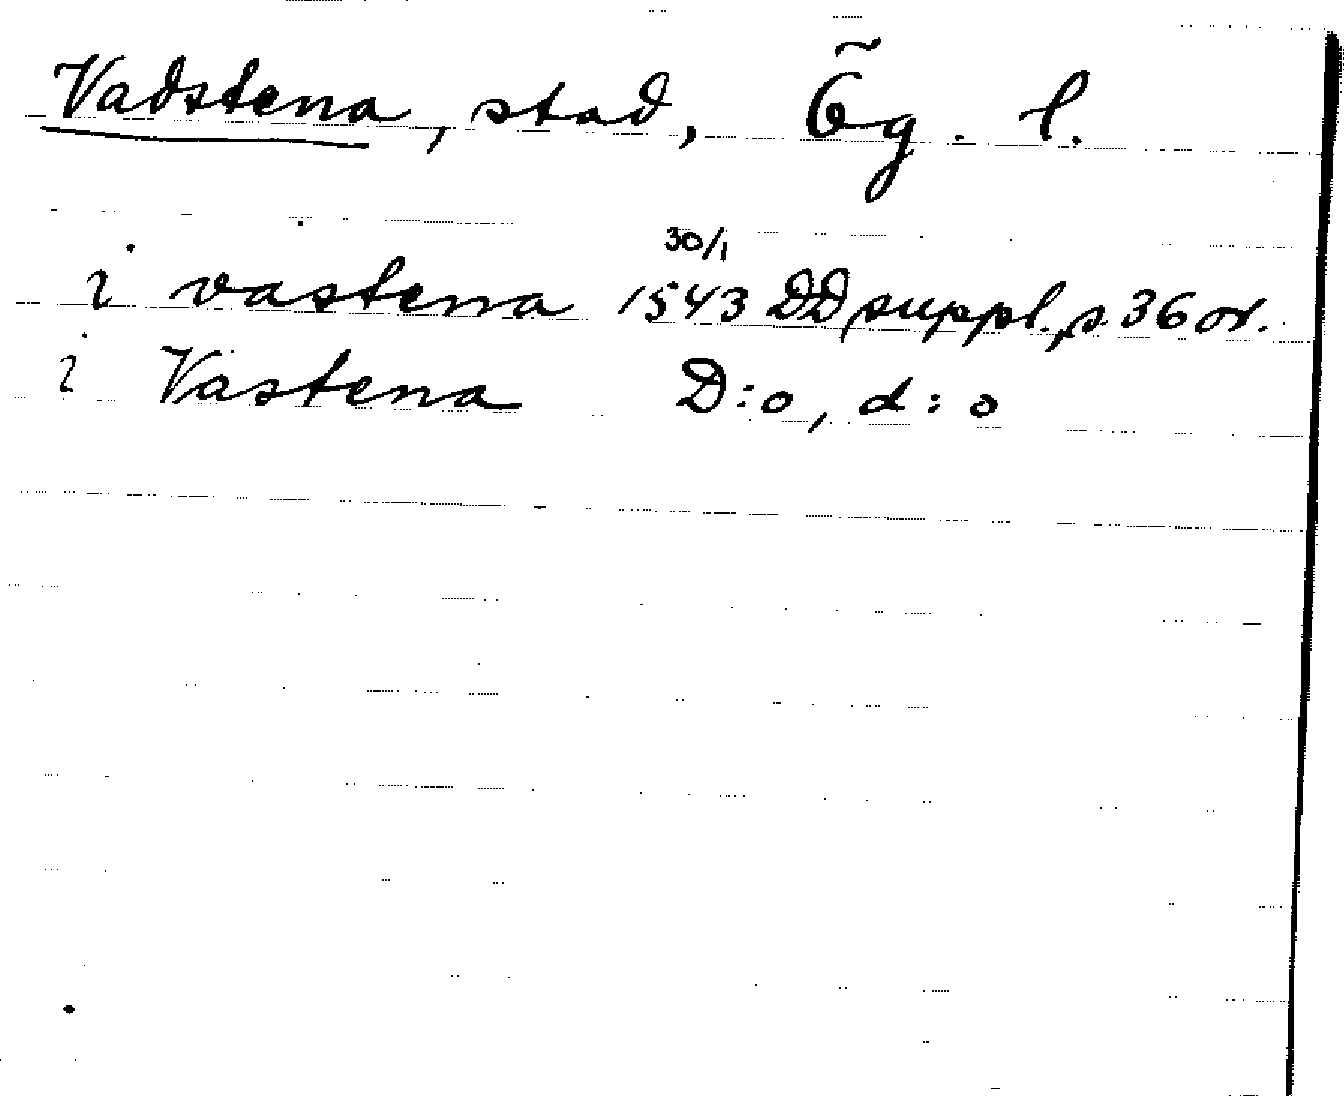 Vadstena, stad, Ög. l.
i vastena 30/1 1543 DD suppl., s. 36 or.
i Vastena D:o, d:o